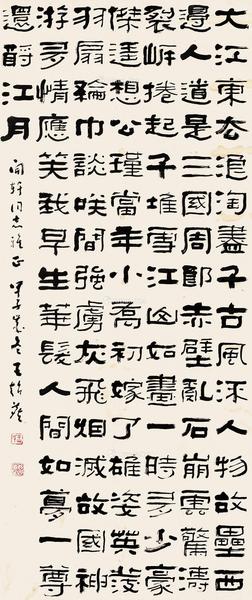 大江東去浪淘盡千古風流人物故壘西
邊人道是三國周郎赤壁亂石崩雲驚濤
裂岸捲起千堆雪江山如畫一時多少豪
傑遙想公瑾當年小喬初嫁了雄姿英發
羽扇綸巾談咲間強虜灰飛烟滅故國神
游多情應笑我早生華髮人間如夢一尊
還酹江月
同志雅正